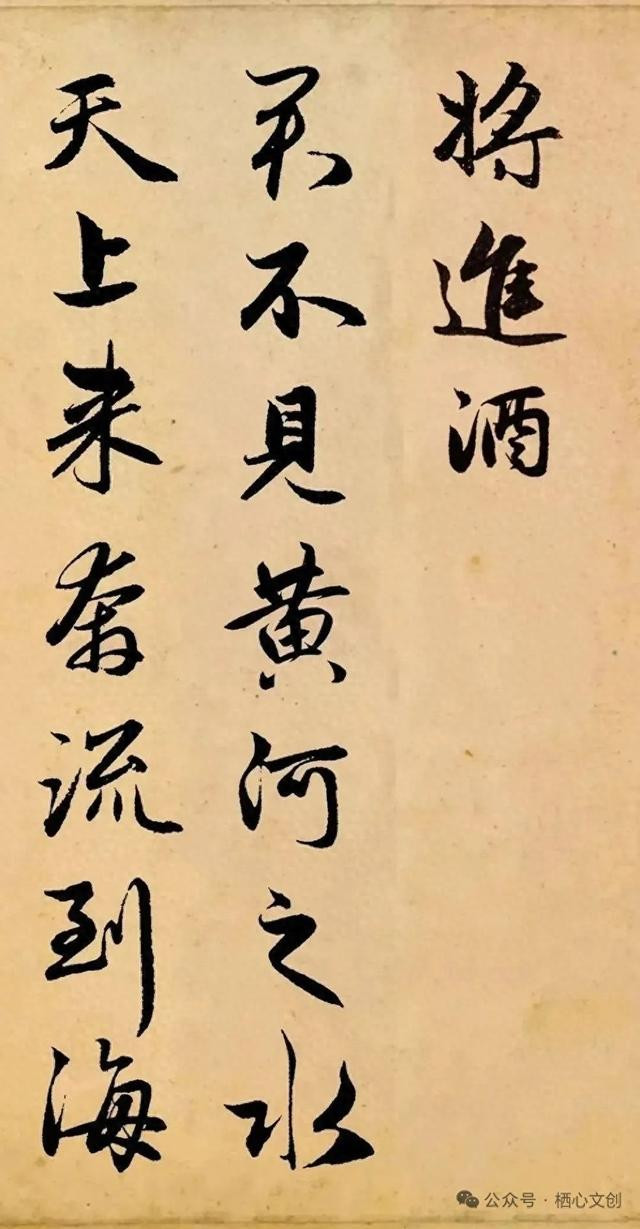 將進酒
君不見黄河之水
天上来奔流到海
公众号·栖心文创